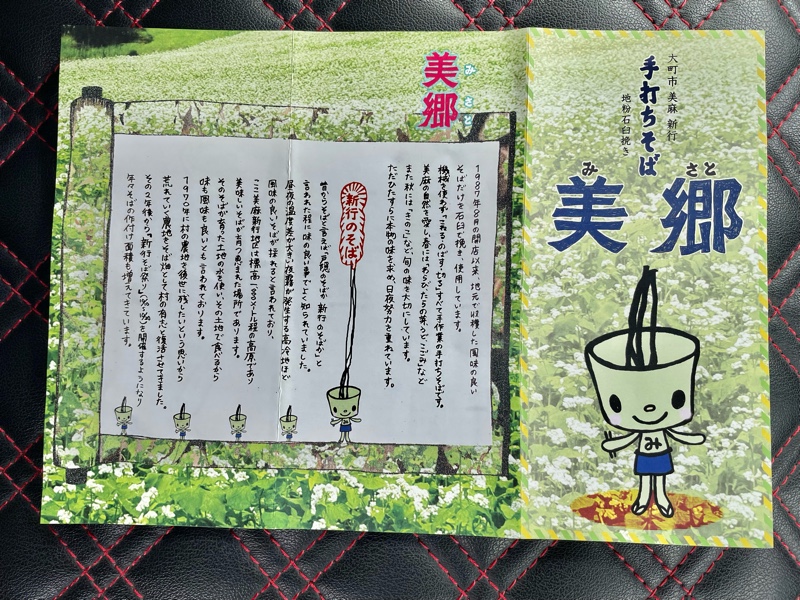 大町市 美麻 新行
手打ちそば
地粉石臼挽き
み さと
美 郷
み
みさと
美郷
1987年8月の開店以来、地元で収穫した風味の良い
そばだけを石臼で挽き、使用しています。
機械を使わず「こねる・のばす・切る」すべて手作業の手打ちそばです。
美麻の自然を愛し、春には、「わらび・たらの芽・うど・こごみ」など
また秋には、「きのこ」など、旬の味を大切にしています。
ただひたすらに本物の味を求め、日夜努力を重ねています。
新行のそば
昔からそばと言えば「戸隠のそばか 新行のそばか」と
言われた程に味の良い事でよく知られていました。
昼夜の温度差が大きい夜霧が発生する高冷地ほど
風味の良いそばが採れると言われており、
ここ美麻新行地区は標高1,000メートル程の高原であり
美味しいそばが育つ恵まれた場所であります。
そのそばが育った土地の水を使い、その土地で食べるから
味も風味も良いとも言われております。
1970年に村の農地を後世に残したいという思いから
荒れていく農地をそば畑として村の有志と復活させてきました。
その2年後から「新行そば祭り」を開催するようになり
年々そばの作付け面積も増えてきています。